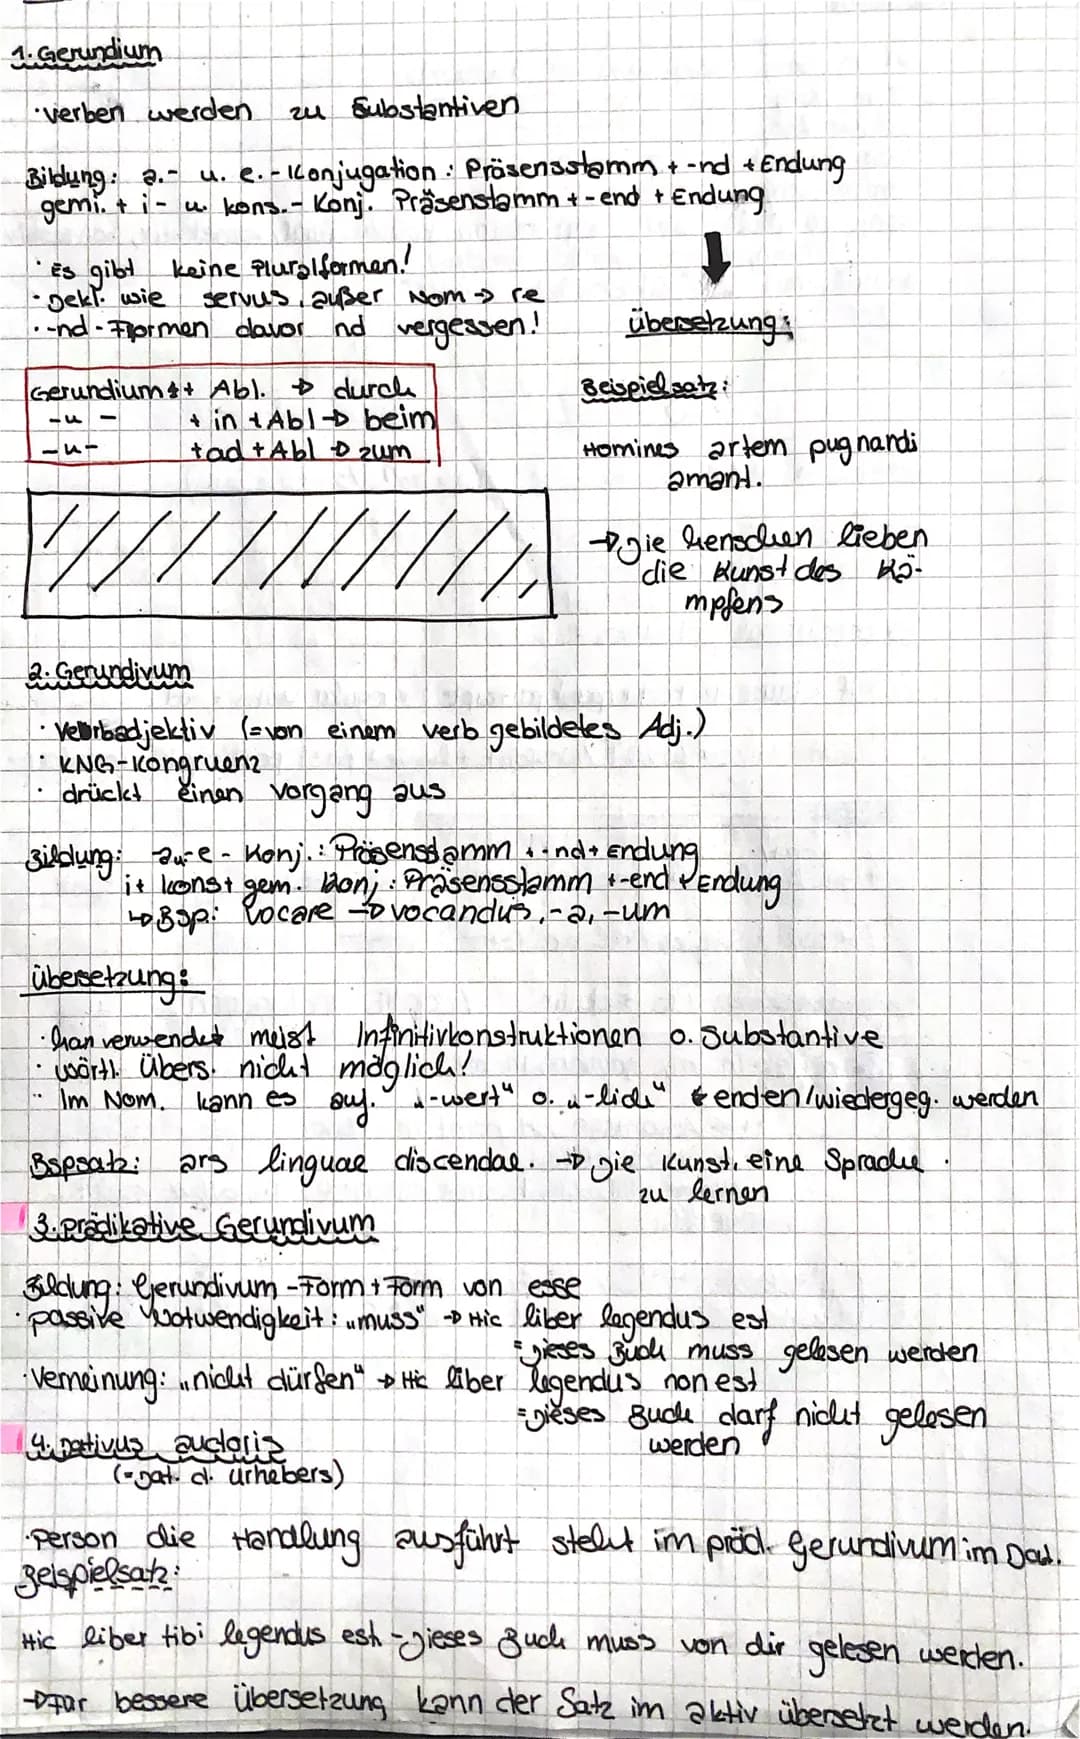 1. Gerundium
· verben werden zu Substantiven
Bildung: a.- u. e.-Konjugation: Präsensstamm + -nd + Endung
gemi. + i- u. kons.- Konj. Präsenstamm + -end + Endung
· Es gibt keine Pluralformen!
· Dekl. wie servus, außer Nom → re
· -nd-Formen davor nd vergessen!
übersetzung:
Gerundium + Abl. → durch
-u- + in + Abl → beim
-u- + ad + Abl → zum
Beispielsatz:
Homines artem pugnandi
amant.
→ Die Menschen lieben
die Kunst des Kä-
mpfens
2. Gerundivum
· Verbadjektiv (=von einem verb gebildetes Adj.)
· KNG-Kongruenz
· drückt einen vorgang aus
Bildung: a u e - Konj.: Präsensstamm + -nd + Endung
i + kons + gem. Konj: Präsensstamm + -end + Endung
↳ Bsp: Vocare → vocandus, -a, -um
übersetzung:
· Man verwendet meist Infinitivkonstruktionen o. Substantive
· wörtl. Übers. nicht möglich!
· Im Nom. kann es auf. "-wert" o. "-lich" enden/wiedergeg. werden
Bspsatz: ars linguae discendae. → Die Kunst, eine Sprache
zu lernen
3. prädikative Gerundivum
Bildung: Gerundivum-Form + Form von esse
· passive Notwendigkeit: „muss" → Hic liber legendus est
= Dieses Buch muss gelesen werden
· Verneinung: „nicht dürfen" → Hic liber legendus non est
= Dieses Buch darf nicht gelesen
werden
4. Dativus auctoris
(=Dat. d. Urhebers)
· Person die Handlung ausführt steht im präd. Gerundivum im Dat.
Beispielsatz:
Hic liber tibi legendus est - Dieses Buch muss von dir gelesen werden.
→ Für bessere übersetzung kann der Satz im aktiv übersetzt werden.